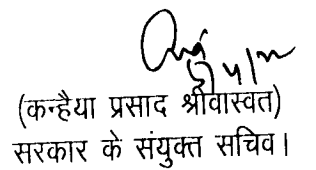 (कन्हैया प्रसाद श्रीवास्वत)
सरकार के संयुक्त सचिव।